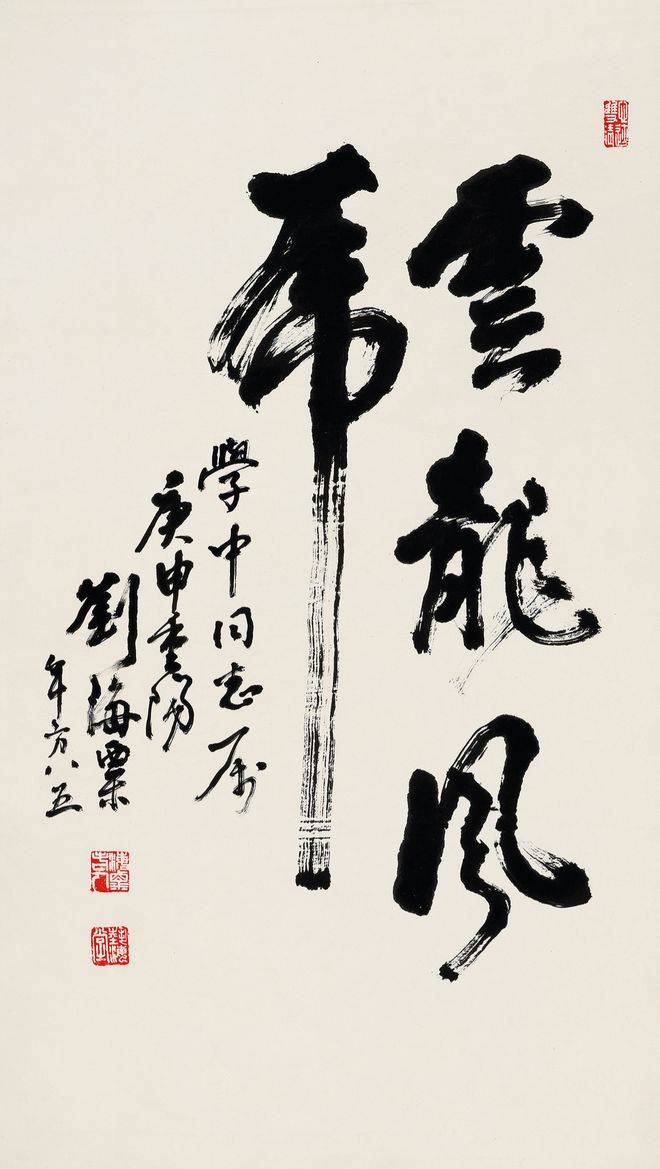 雲龍風
虎
學中同志属
庚申重陽
劉海粟
年方八五